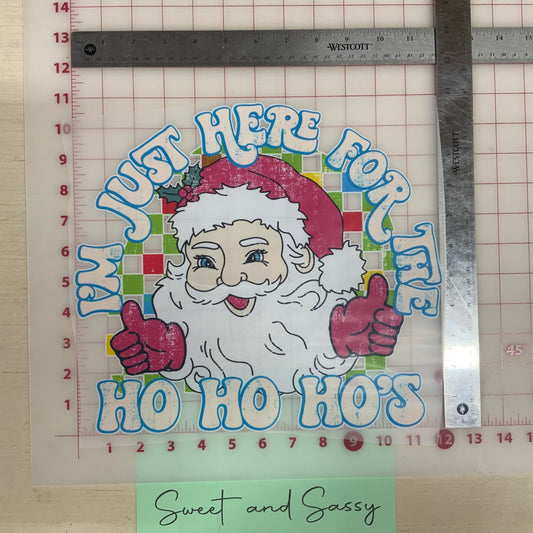 WESTCOTT
WESTCOTT
I'M JUST HERE FOR THE
HO HO HO'S
45°
14
13
12
11
10
9
8
7
6
5
4
3
2
1
1 2 3 4 5 6 7 8 9 10 11 12 13 14
Sweet and Sassy